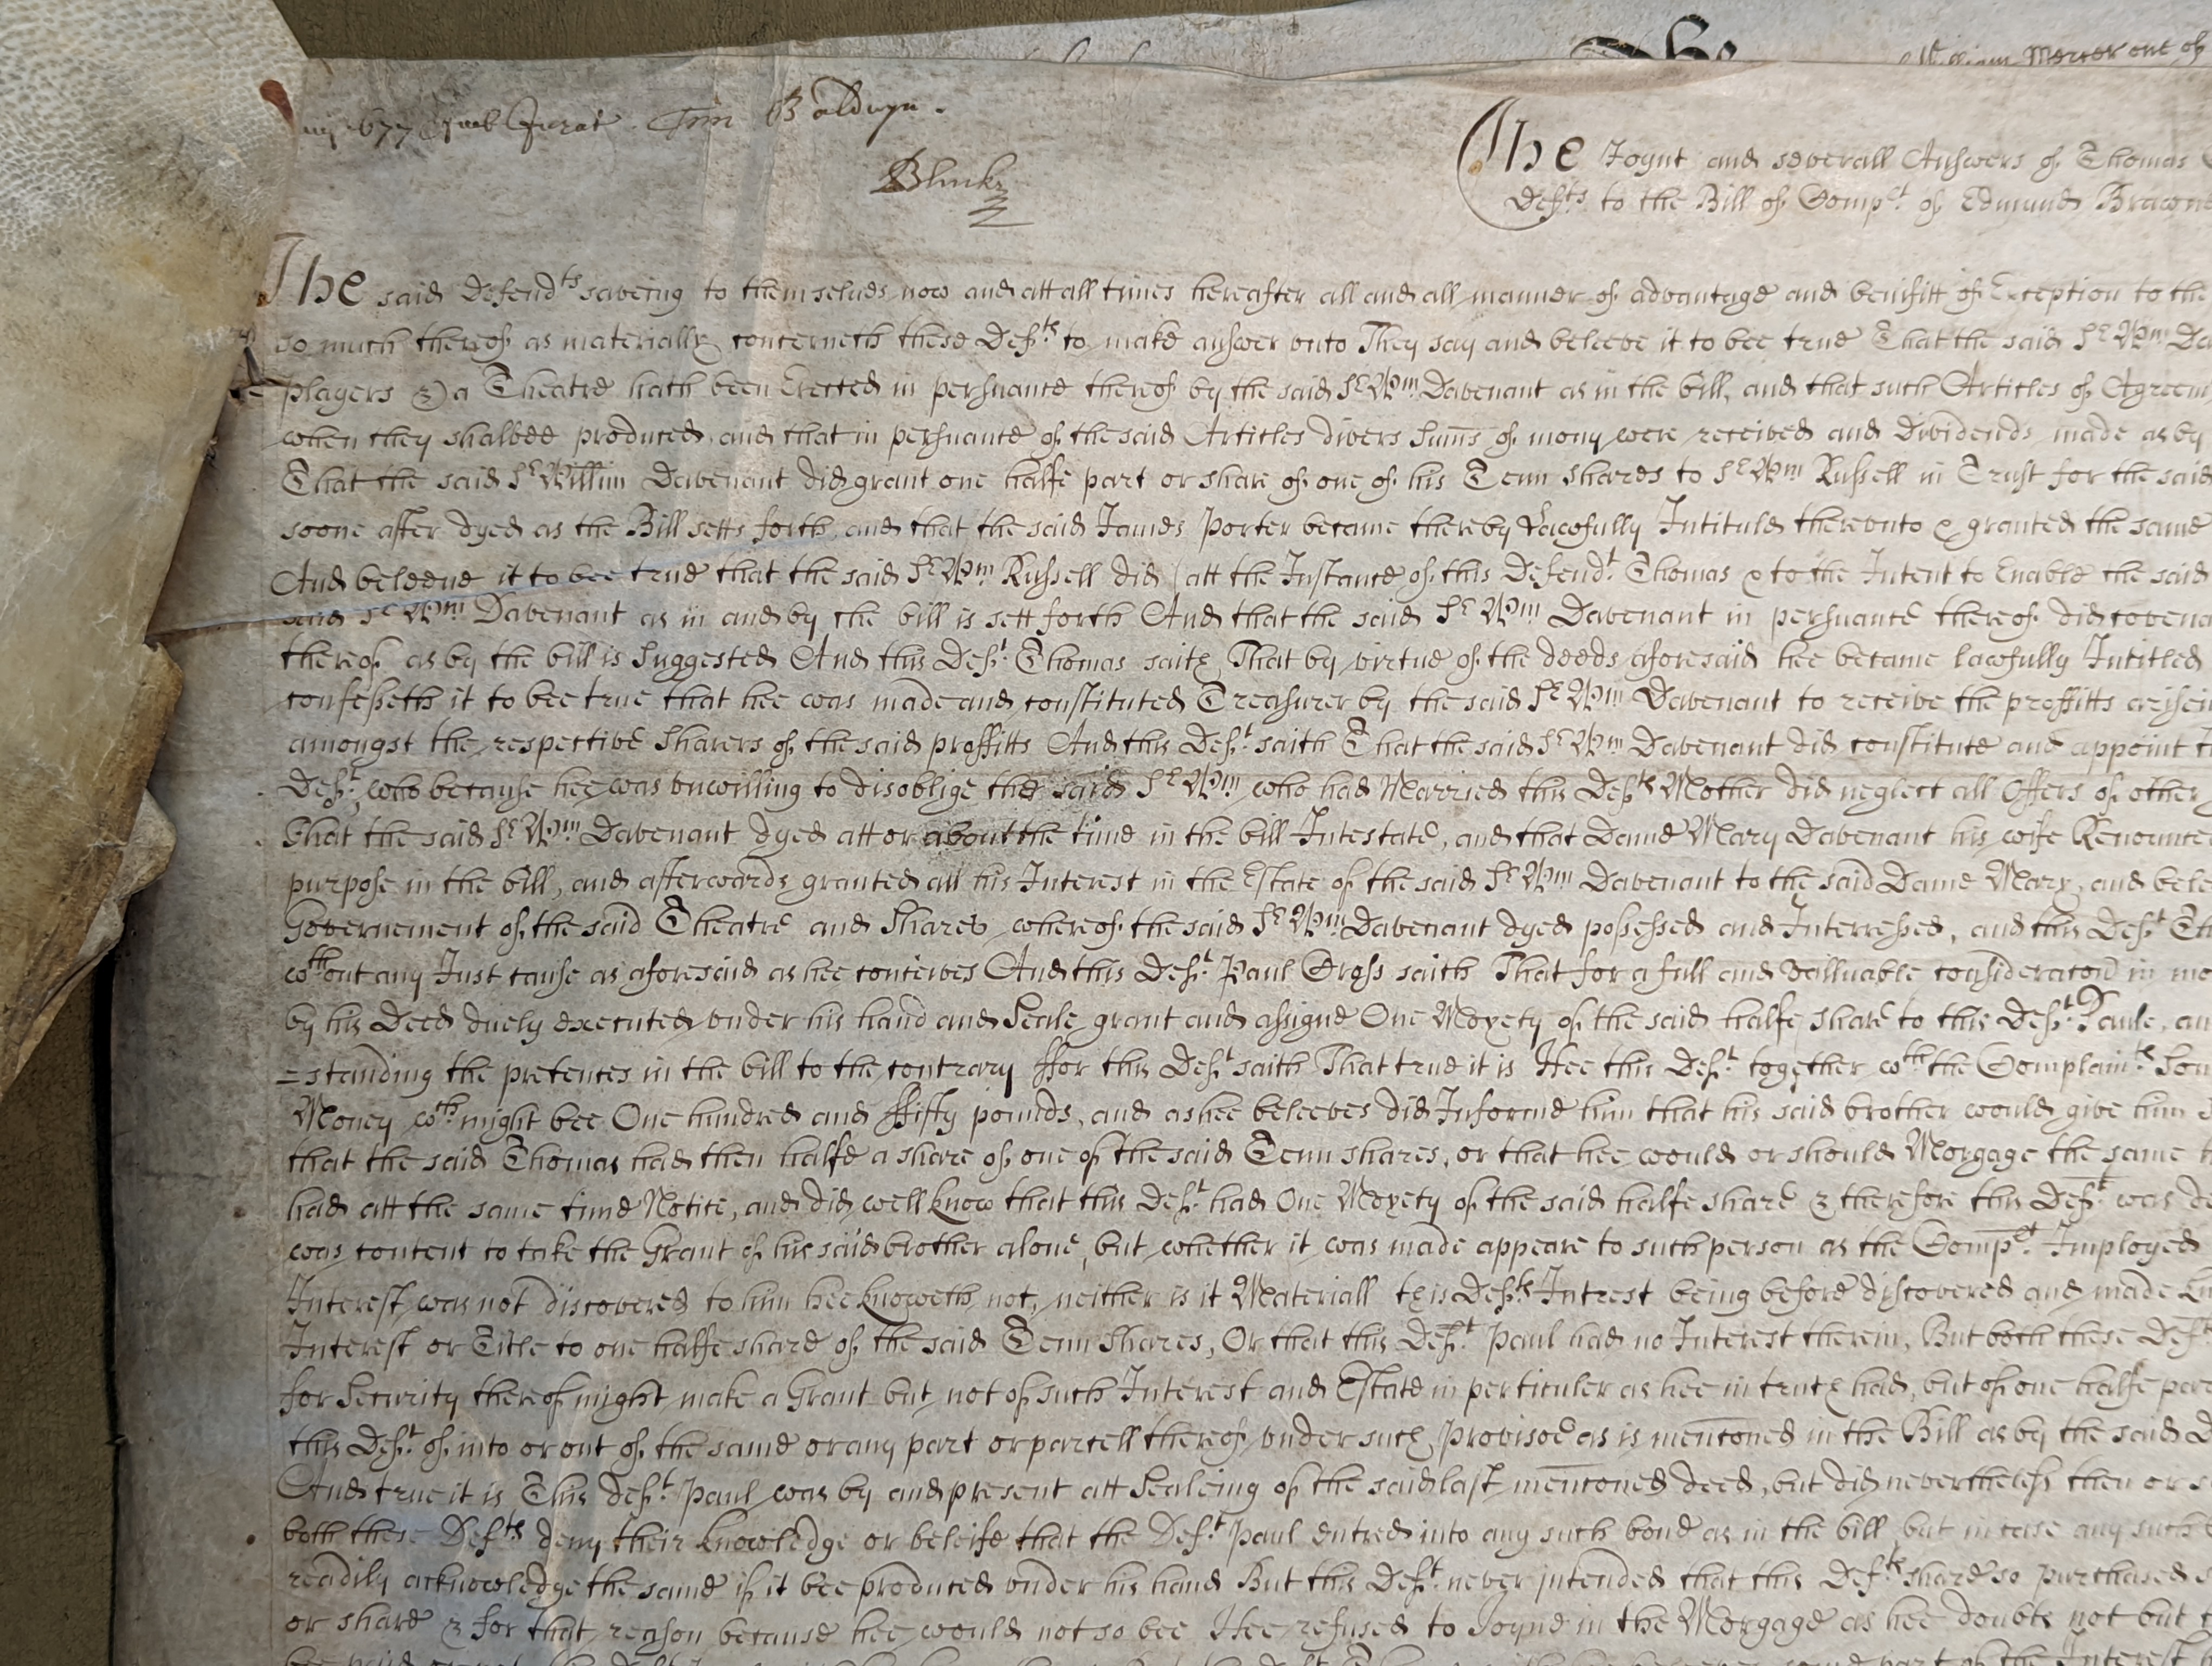 William Mercer one of
1677 Jurat Tim Baldwyn.
Blucke
The Joynt and severall Answers of Thomas
Defts to the Bill of Compt of Edmund
The said Defendts saveing to themselves now and att all times hereafter all and all manner of advantage and benifitt of Exception to the
so much thereof as materially concerneth these Defts to make answer vnto They say and beleeve it to bee true That the said Sr Wm
players & a Theatre hath been Erected in persuance thereof by the said Sr Wm Davenant as in the bill, and that such Articles of
when they shalbee produced, and that in persuance of the said Articles divers Sums of mony were received and Dividends made as by
That the said Sr Willm Davenant did grant one halfe part or share of one of his Tenn shares to Sr Wm Russell in Trust for the said
soone after dyed as the Bill setts forth, and that the said James Porter became thereby Lawfully Intituled therevnto & granted the same
And beleeve it to bee true that the said Sr Wm Russell did (att the Instance of this Defendt Thomas & to the Intent to Enable the said
said Sr Wm Davenant as in and by the bill is sett forth And that the said Sr Wm Davenant in persuance thereof did
thereof as by the bill is Suggested And this Deft Thomas saith, That by virtue of the deeds aforesaid hee became lawfully Intitled
confesseth it to bee true that hee was made and constituted Treasurer by the said Sr Wm Davenant to receive the proffitts
amongst the respective Sharers of the said proffitts And this Deft saith That the said Sr Wm Davenant did constitute and appoint
Deft, who because hee was vnwilling to disoblige the said Sr Wm who had Married this Defts Mother did neglect all Offers of other
That the said Sr Wm Davenant dyed att or about the time in the bill Intestate, and that Dame Mary Davenant his wife
purpose in the bill, and afterwards granted all his Interest in the Estate of the said Sr Wm Davenant to the said Dame Mary, and
Governement of the said Theatre and Shares whereof the said Sr Wm Davenant dyed possessed and Interressed, and this Deft
wthout any Just cause as aforesaid as hee conceives And this Deft Paul Cross saith That for a full and valluable consideracon in
by his Deed duely executed vnder his hand and Seale grant and assigne One Moyety of the said halfe share to this Deft Paule,
=standing the pretences in the bill to the contrary ffor this Deft saith That true it is Hee this Deft together wth the Complaints
Money wch might bee One hundred and ffifty pounds, and as hee beleeves did Informe him that his said brother would give him
that the said Thomas had then halfe a share of one of the said Tenn shares, or that hee would or should Morgage the same
had att the same time Notice, and did well know that this Deft had One Moyety of the said halfe share & therefore this Deft was
was content to take the Grant of his said brother alone, but whether it was made appeare to such person as the Compt Imployed
Interest was not discovered to him hee knoweth not, neither is it Materiall this Defts Intrest being before discovered and made
Interest or Title to one halfe share of the said Tenn Shares, Or that this Deft Paul had no Interest therein, But both these Defts
for Security thereof might make a Grant but not of such Interest and Estate in perticuler as hee in truth had, but of one halfe
this Deft of into or out of the same or any part or parcell thereof vnder such Provisoe as is mentoned in the Bill as by the said
And true it is This Deft Paul was by and present att Sealeing of the said last mentoned deed, but did neverthelesse then or
both these Defts deny their knowledge or beleife that the Deft Paul entred into any such bond as in the bill but in case any such
readily acknowledge the same if it bee produced vnder his hand But this Deft never intended that this Defts share so purchased
or share & for that reason because hee would not so bee Hee refused to Joyne in the Morgage as hee doubts not but